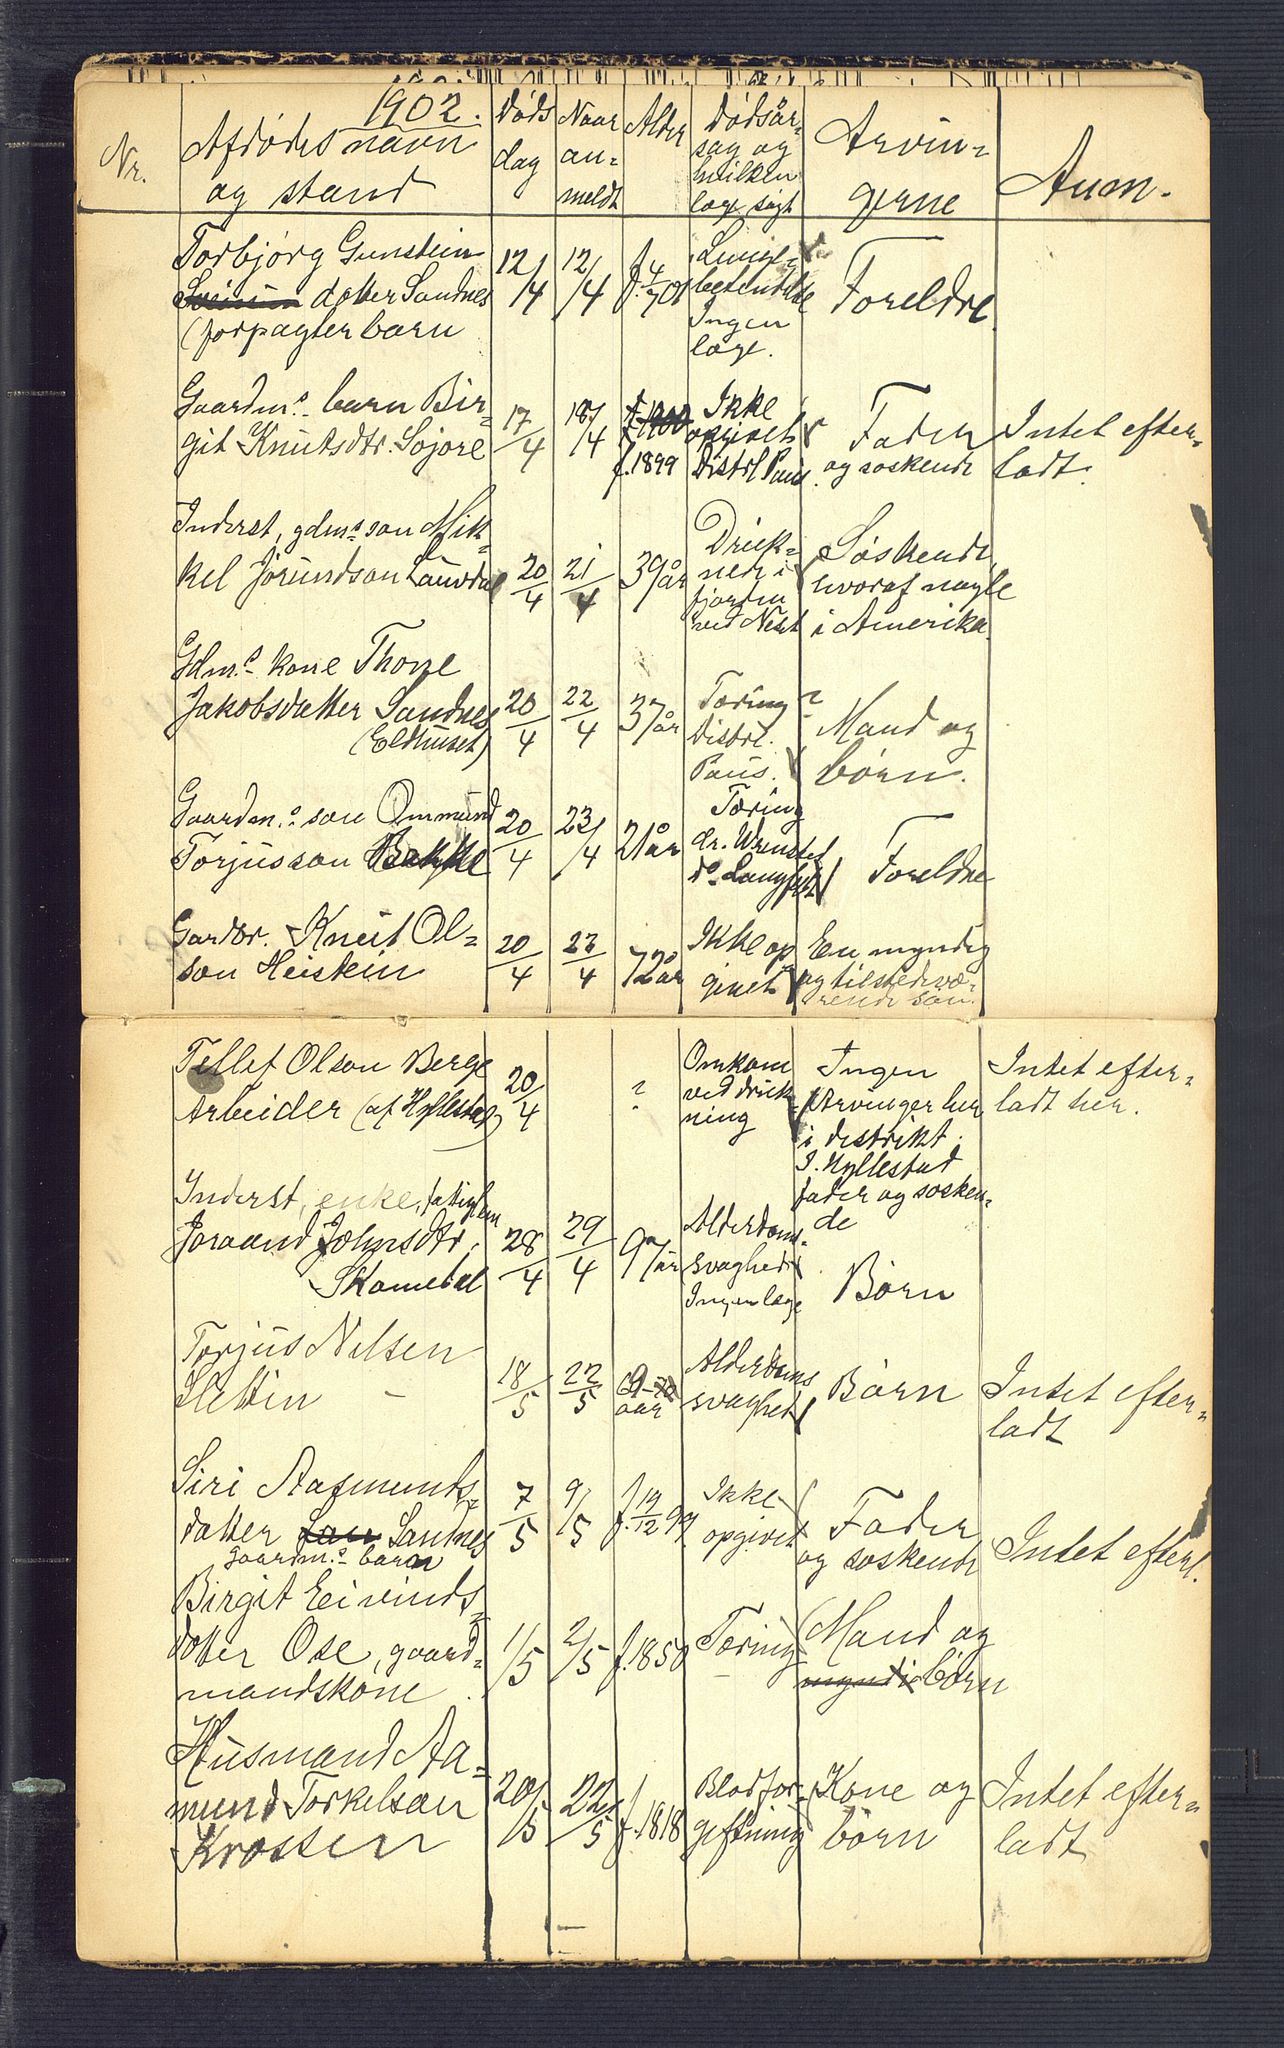 1902.
Nr.
Afdødes navn
og stand
Døds
dag
Naar
an=
meldt
Alder
Dødsår=
sag og
hvilken
læge søgt
Arvin=
gerne
Anm.
Torbjørg Gunstein
datter Sandnes
(forpagter barn
12/4
12/4
f. 4/7 01
Lunge=
betendelse
Ingen
læge.
Foreldre
Gaardm.s barn Bir=
git Knutsdtr. Sojore
17/4
18/4
f. 1900
f. 1899
Ikke
opgivet
Distrl Paus.
Fader
og søskende
Intet efter=
ladt.
Inderst, gdms søn Mik=
kel Jorundson Lauvdal
20/4
21/4
39 år
Druk=
nede i
fjorden
ved Neset
Søskende,
hvoraf nogle
i Amerika
Gdm.s kone Thone
Jakobsdatter Sandnes
(Eldhuset)
20/4
22/4
37 år
Tæring
distrl.
Paus.
?
Mand og
børn.
Gaardm.s søn Ommund
Torjusson Bakke
20/4
23/4
21 år
Tæring
dr. Wrensted
do Langfeldt
Foreldre
Gardbr. Knut Ol=
son Heistein
20/4
23/4
72 år
Ikke op
givet
En myndig
og tilstedevæ=
rende søn.
Tellef Olson Berge
Arbeider (af Hyllestad)
20/4
?
Omkom
ved druk
ning
Ingen
Arvinger her
i distrikt.
I Hyllestad
fader og søsken=
de
Intet efter=
ladt her.
Inderst, enke, fattiglem
Joraand Johnsdtr,
Skomedal
28/4
29/4
97 år
Alderdoms=
svaghed
Ingen læge
Børn
Torjus Nilsen
Slettin
18/5
22/5
aar
Alderdoms
svaghet
Børn
Intet efter=
ladt
Siri Aasmunds=
datter Sandnes
gaardm.s barn
7/5
9/5
f. 19/12 99
Ikke
opgivet
Fader
og søskende
Intet efterl.
Birgit Eivinds=
dotter Ose, gaard=
mandskone.
1/5
2/5
f. 1850
Tæring
Mand og
myndige børn
Husmand Aa=
mund Torkelson
Krossen
20/5
22/5
f. 1818
Blodfor=
giftning
Kone og
børn
Intet efter=
ladt